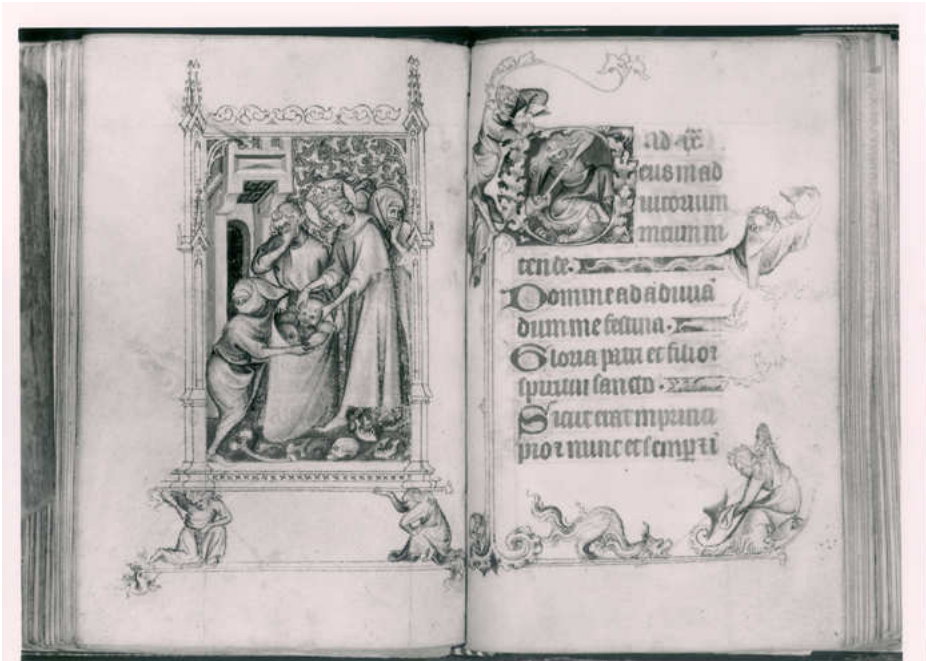 ad ix
eus in ad
iutorium
meum in
tende.
Domine ad adiuua
dum me festina.
Gloria patri et filio ⁊
spiritui sancto.
Sicut erat in princi
pio ⁊ nunc et semp̲ ⁊ i